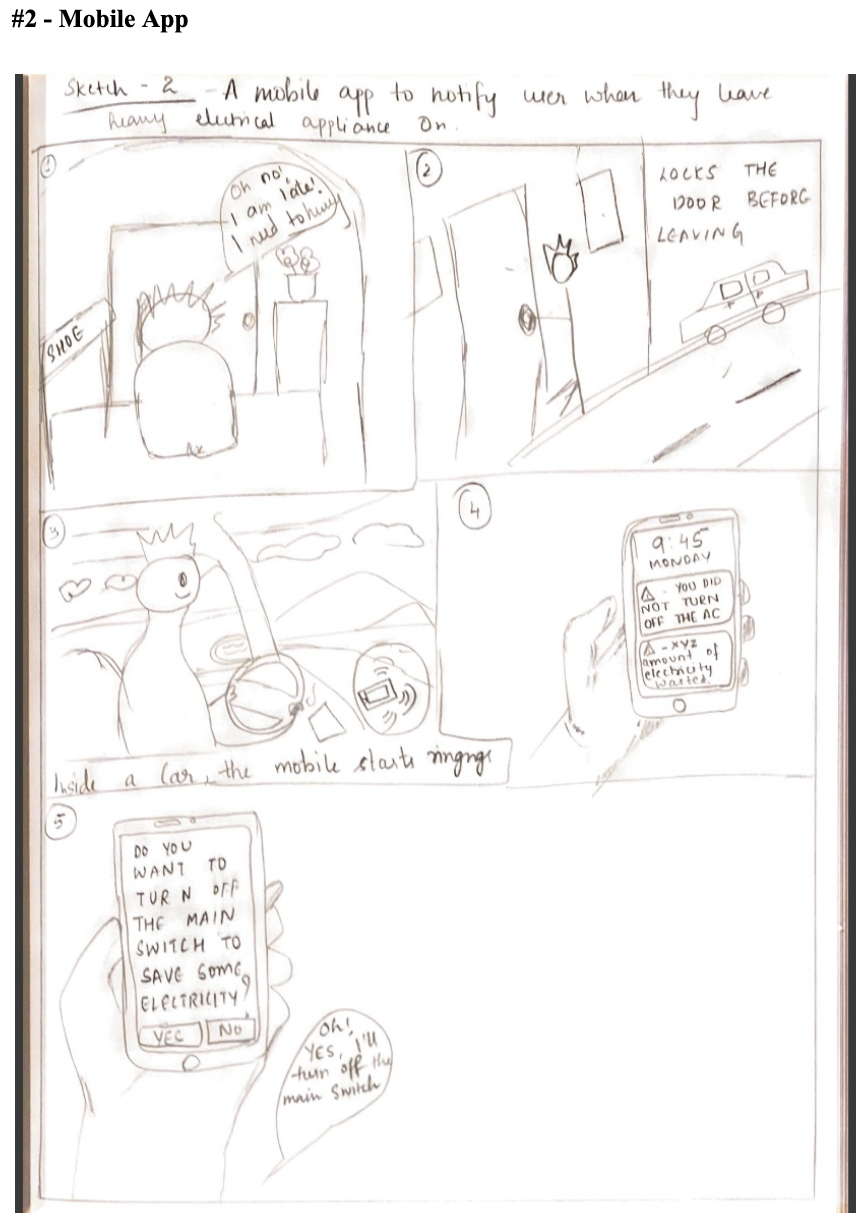 #2 - Mobile App
Sketch - 2 - A mobile app to notify user when they leave
heavy electrical appliance On.
1
Oh no!
I am late!
I need to hurry
SHOE
2
LOCKS THE
DOOR BEFORE
LEAVING
3
Inside a Car, the mobile starts ringing
4
9:45
MONDAY
- YOU DID
NOT TURN
OFF THE AC
- XYZ
amount of
electricity
wasted.
5
DO YOU
WANT TO
TURN OFF
THE MAIN
SWITCH TO
SAVE SOME
ELECTRICITY?
YES NO
Oh!
YES, I'll
turn off the
main Switch